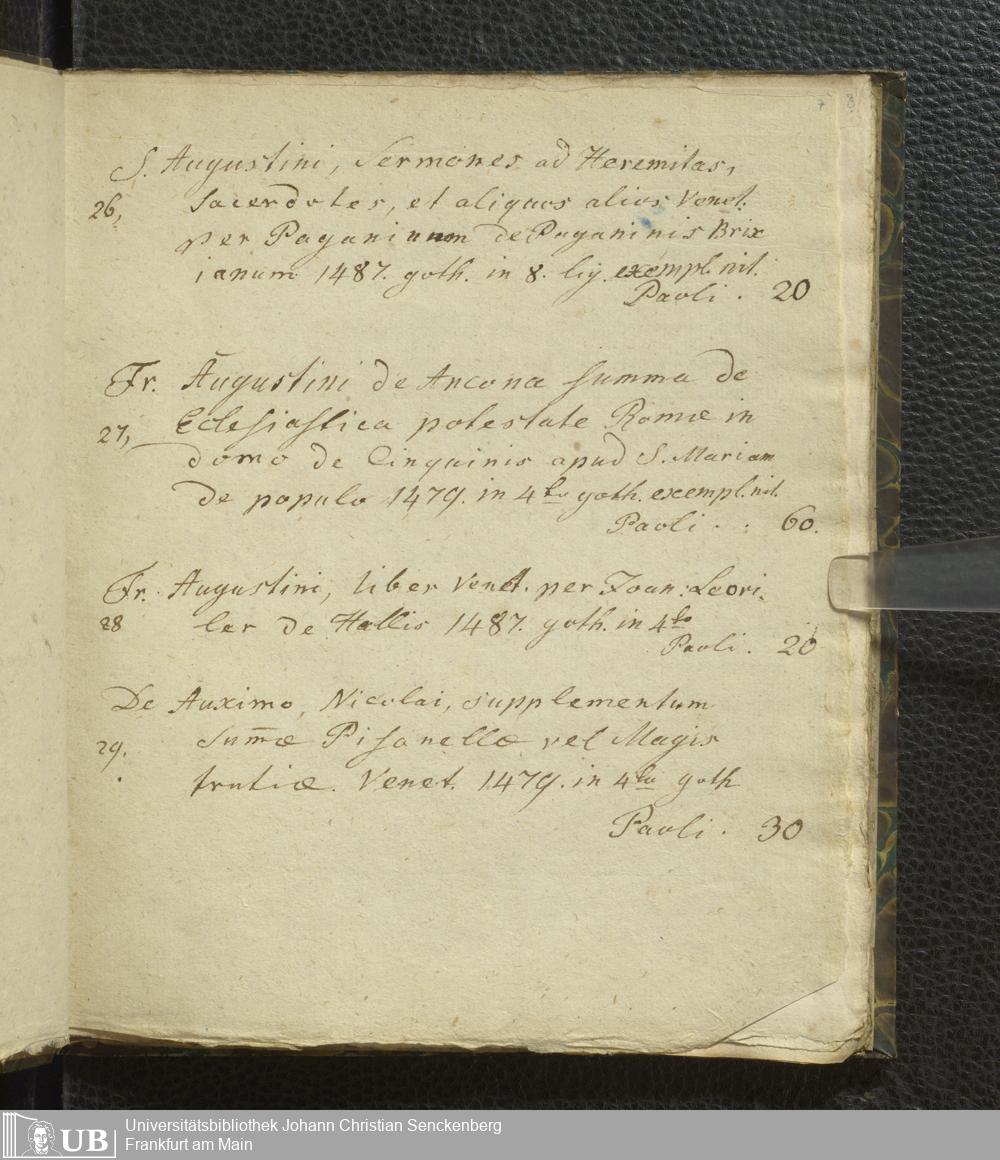 7 8
S. Augustini, Sermones ad Heremitas,
26, Sacerdotes, et aliquos alios Venet.
per Paganinum de Paganinis Brix
ianum 1487. goth. in 8. lig. exempl. nit.
Paoli . 20
Fr. Augustini de Ancona Summa de
27, Eclesiastica potestate Romæ in
domo de Cinquinis apud S. Mariam
de populo 1479. in 4to goth. exempl. nit.
Paoli . . 60.
Fr. Augustini, liber Venet. per Joan: Leori.
28 ler de Hallis 1487. goth. in 4to
Paoli . 20
De Auximo, Nicolai, supplementum
29. Sum̅æ Pisanellæ vel Magis
trutiæ. Venet. 1479. in 4to goth
Paoli . 30
UB
Universitätsbibliothek Johann Christian Senckenberg
Frankfurt am Main